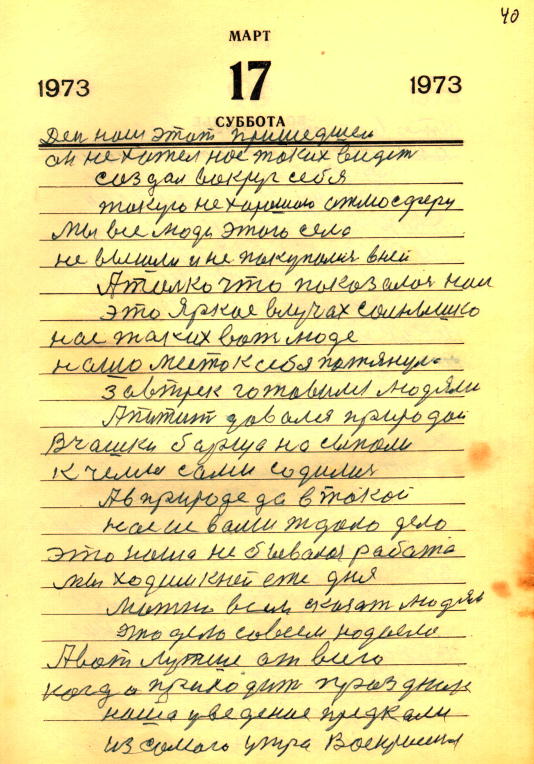 40
МАРТ
1973 17 1973
СУББОТА
Ден наш этот пришедшей
он не хател нас таких видет
создал вокруг себя
такую не хорошою атмосферу
Мы все люди этого село
не вышли и не покупалис в ней
А толко что показалос нам
это яркое в лучах солнышко
нас таких вот люде
на это место к себя потянуло
Завтрек готовили людями
Апитит давался природай
В чашки барща на сыпали
к чему сами содилис
А в природе да в такой
нас и вами ждало дело
это наша не бывалоя работа
мы ходим к ней ете дня
можно всем сказат людям
это дело совсем надоело
А вот лутше от всего
когда приходит праздник
наша уведение предками
из самого утра Воскришия